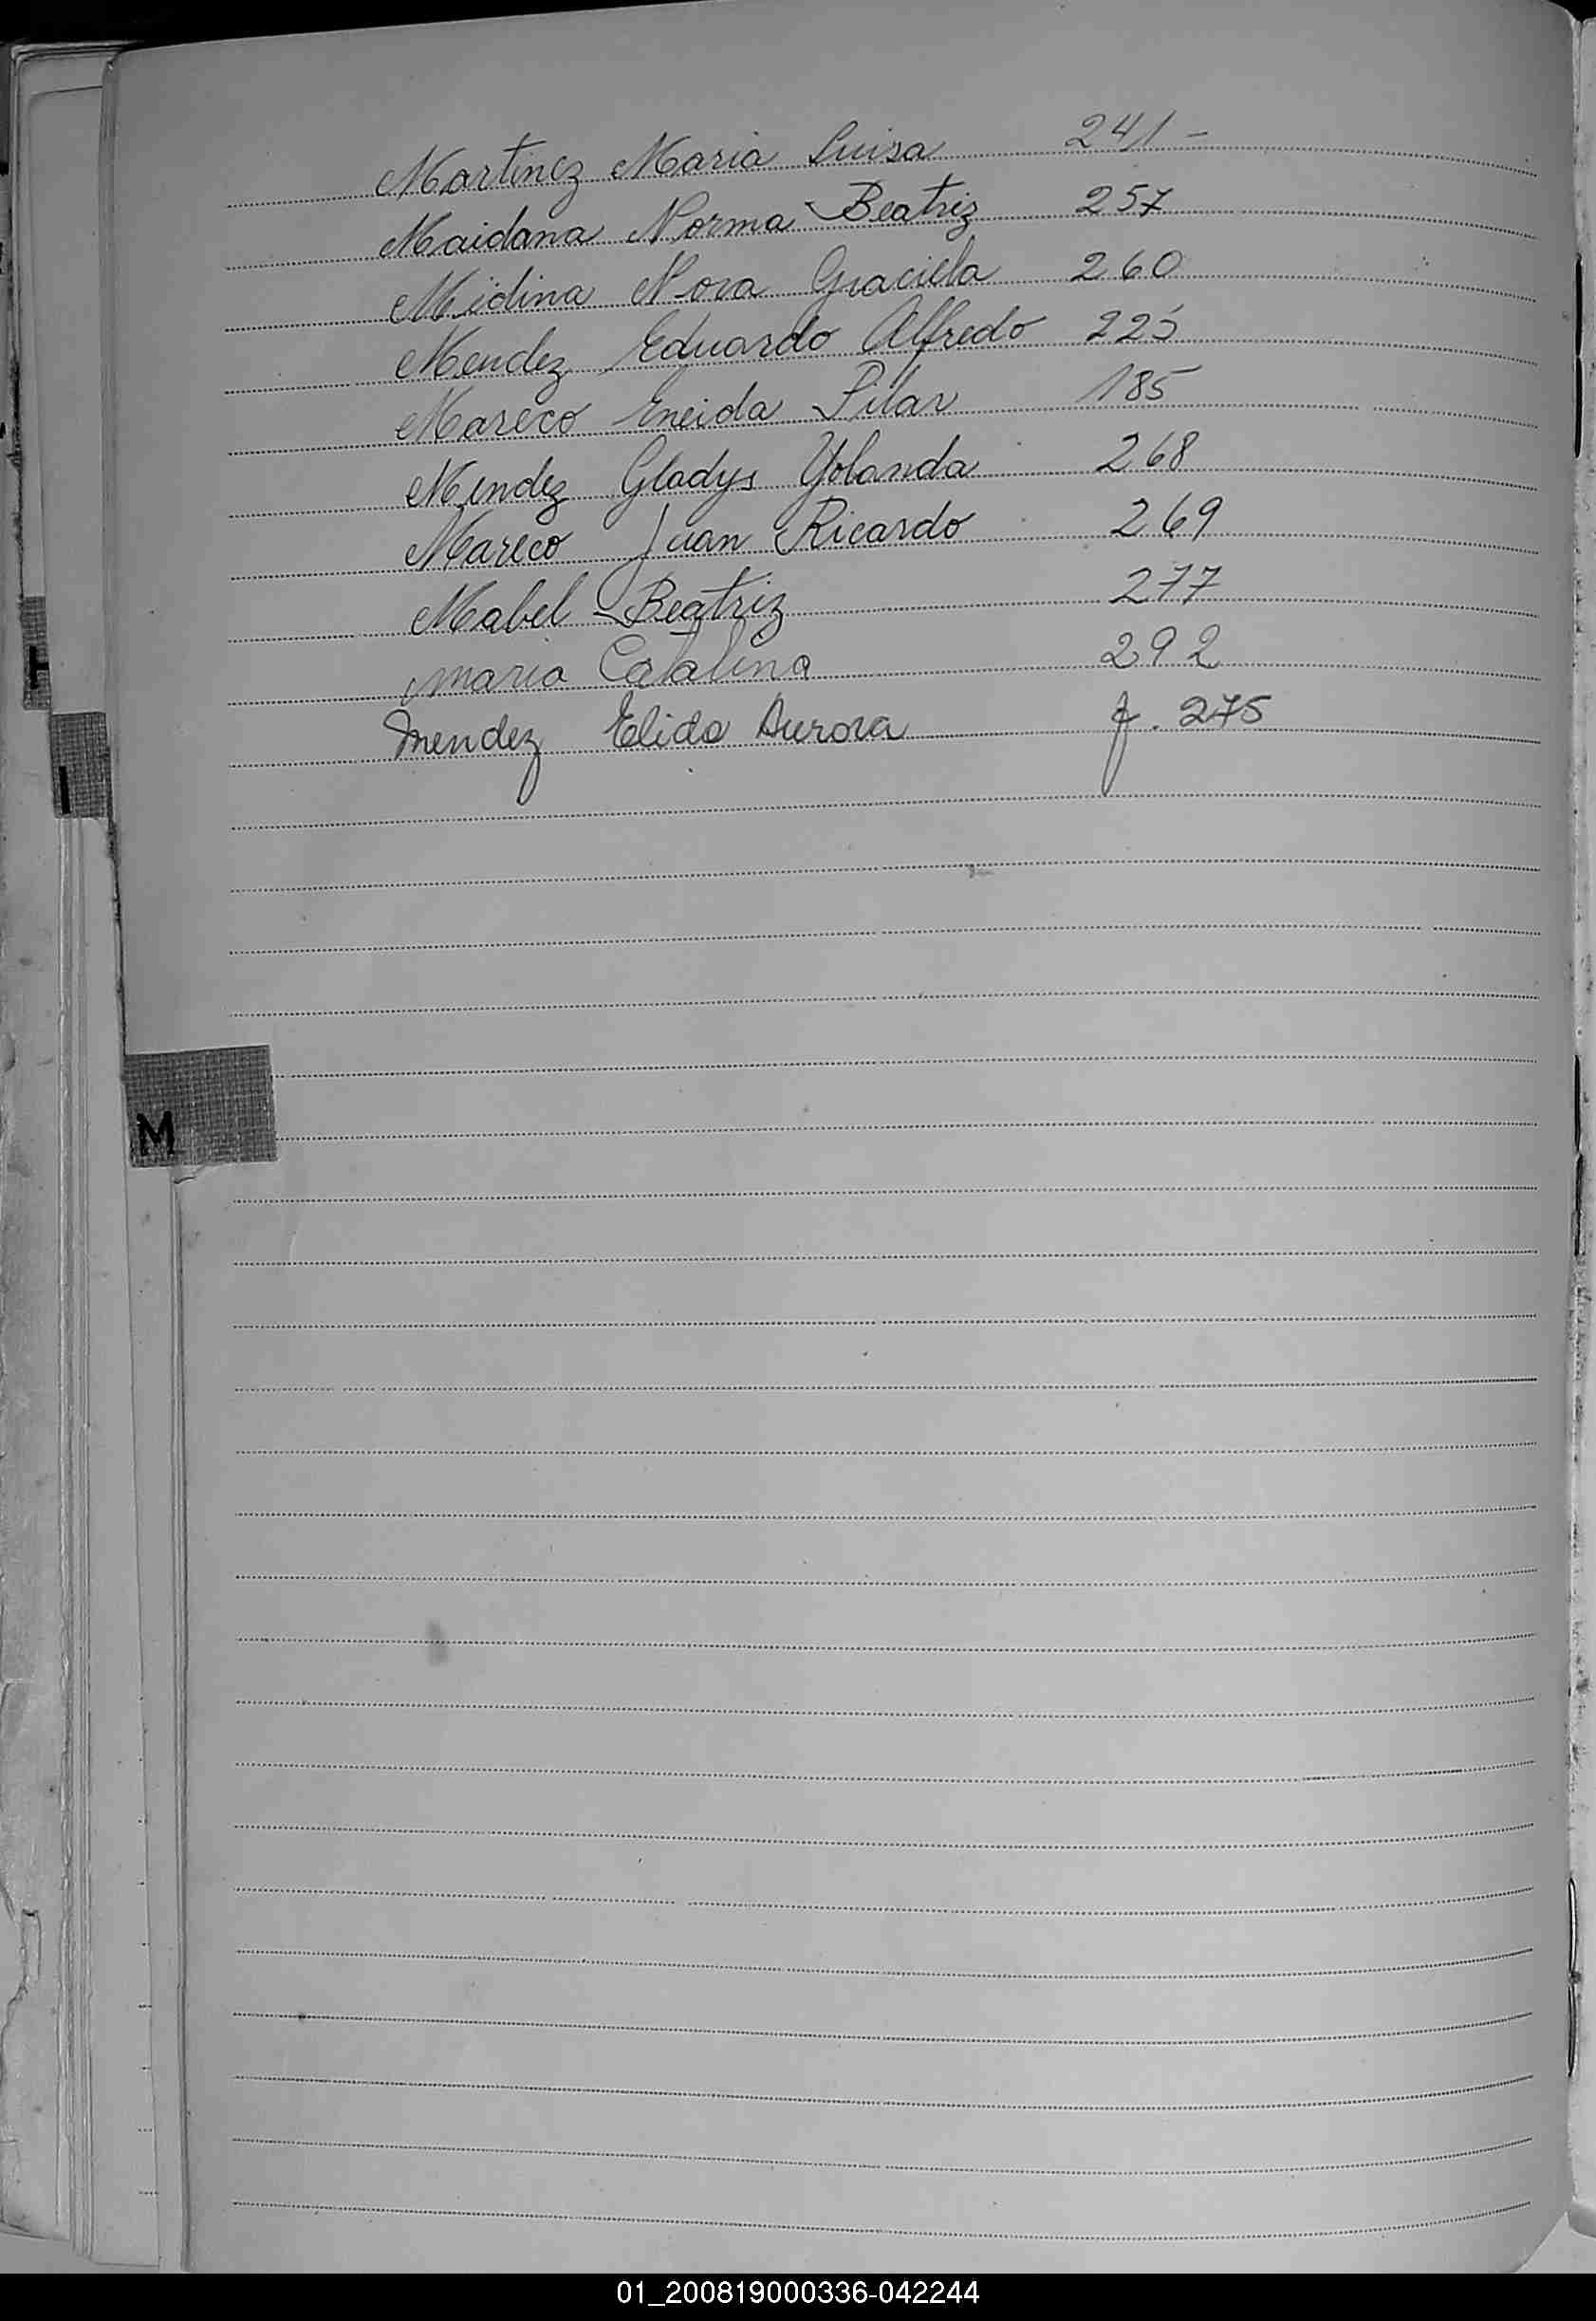 Martinez Maria Luisa 241 -
Maidana Norma Beatriz 257
Medina Nora Graciela 260
Mendez Eduardo Alfredo 225
Mareco Eneida Pilar 185
Mendez Gladys Yolanda 268
Mareco Juan Ricardo 269
Mabel Beatriz 277
maria Catalina 292
Mendez Elida Aurora f. 275
I
I
M
01_200819000336-042244